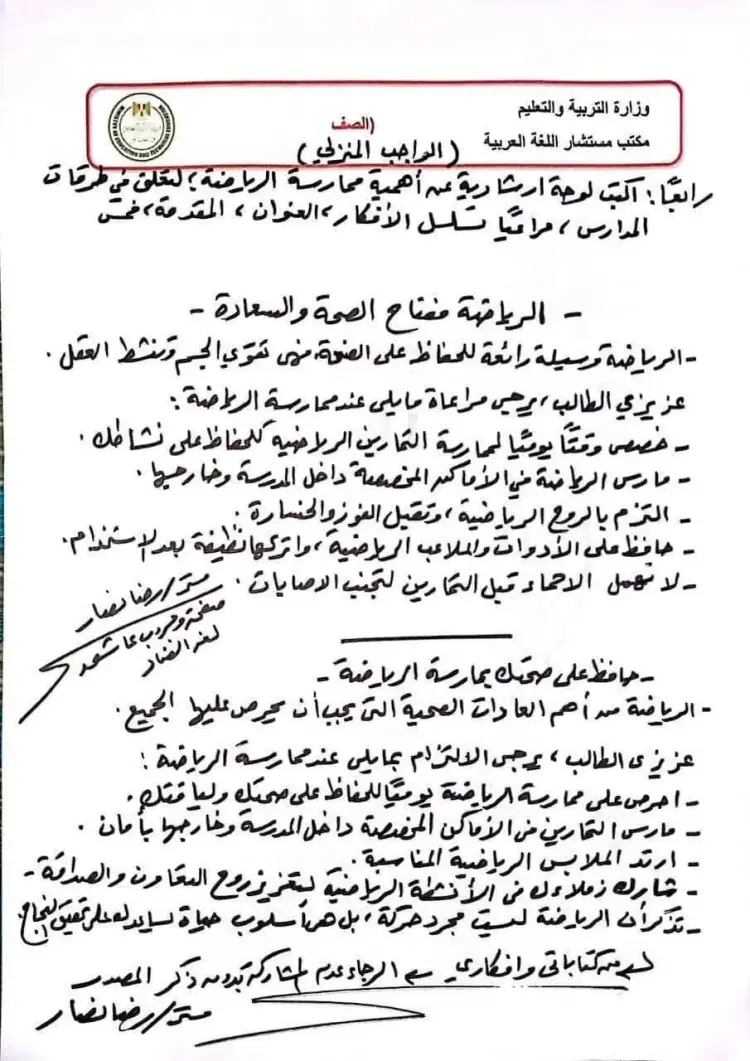 وزارة التربية والتعليم
مكتب مستشار اللغة العربية
(الصف
(الواجب المنزلي)
رابعًا: اكتب لوحة ارشادية عن أهمية ممارسة الرياضة؛ لتعلق في طرقات
المدارس، مراعيًا تسلسل الأفكار، العنوان، المقدمة، خمس
- الرياضة مفتاح الصحة والسعادة -
- الرياضة وسيلة رائعة للحفاظ على الصحة، فهى تقوي الجسم وتنشط العقل.
عزيزي الطالب، يرجى مراعاة مايلى عند ممارسة الرياضة:
- خصص وقتًا يوميًا لممارسة التمارين الرياضية للحفاظ على نشاطك.
- مارس الرياضة في الأماكن المخصصة داخل المدرسة وخارجها.
- التزم بالروح الرياضية، وتقبل الفوز والخسارة.
- حافظ على الأدوات والملاعب الرياضية، واتركها نظيفة بعد الاستخدام.
- لا تهمل الاحماء قبل التمارين لتجنب الاصابات.
مستر/رضا نصار
صفحة وجروب عاشقو
لغة الضاد
- حافظ على صحتك بممارسة الرياضة -
- الرياضة من أهم العادات الصحية التى يجب أن يحرص عليها الجميع.
عزيزى الطالب، يرجى الالتزام بمايلى عند ممارسة الرياضة:
- احرص على ممارسة الرياضة يوميًا للحفاظ على صحتك ولياقتك.
- مارس التمارين فى الأماكن المخصصة داخل المدرسة وخارجها بأمان.
- ارتد الملابس الرياضية المناسبة.
- شارك زملاءك فى الأنشطة الرياضية لتعزيز روح التعاون والصداقة
- تذكر أن الرياضة ليست مجرد حركة، بل هى أسلوب حياة يساعدك على تحقيق النجاح.
من كتاباتى وافكاري الرجاء عدم المشاركة بدون ذكر المصدر
مستر/رضا نصار